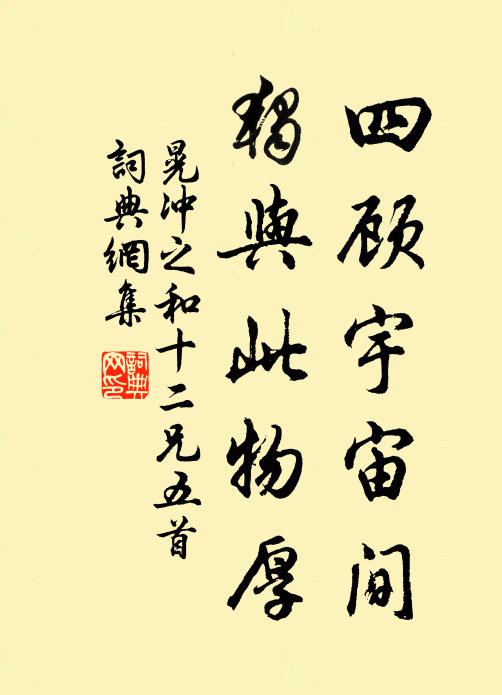 四顾宇宙间
独与此物厚
晃沖之和十二兄五首
詞典網集
詞典
网印